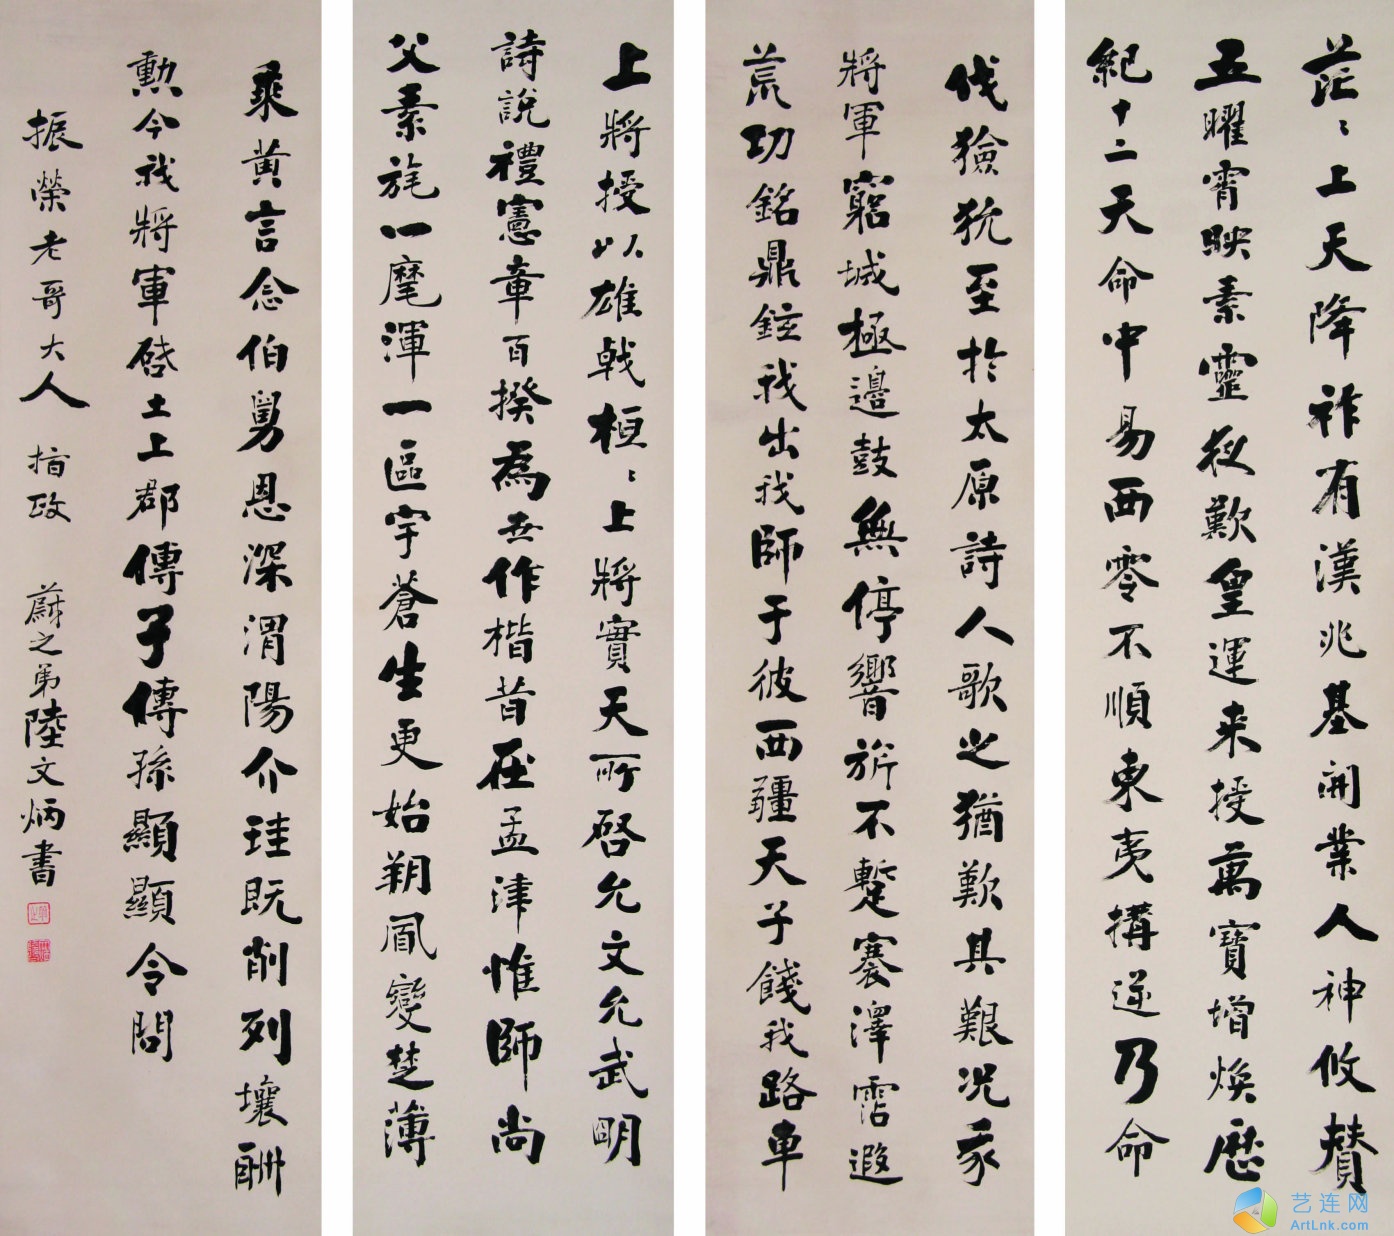 茫〻上天降祚有漢兆基開業人神攸贊
五曜霄映素靈夜歎皇運来授萬寶增焕歷
紀十二天命中易西零不順東夷搆逆乃命
上將授以雄戟桓〻上將實天所啓允文允武明
詩説禮憲章百揆為世作楷昔在孟津惟師尚
父素旄一麾渾一區宇蒼生更始朔風變楚薄
伐獫狁至於太原詩人歌之猶歎其艱况我
將軍窮城極邊鼓無停響旂不蹔褰澤霑遐
荒功銘鼎鉉我出我師于彼西疆天子餞我路車
乘黄言念伯舅恩深渭陽介珪既削列壤酬
勲今我將軍啓土上郡傳子傳孫顯顯令問
振榮老哥大人 指政 蔚之弟陸文炳書
艺连网
ArtLnk.com